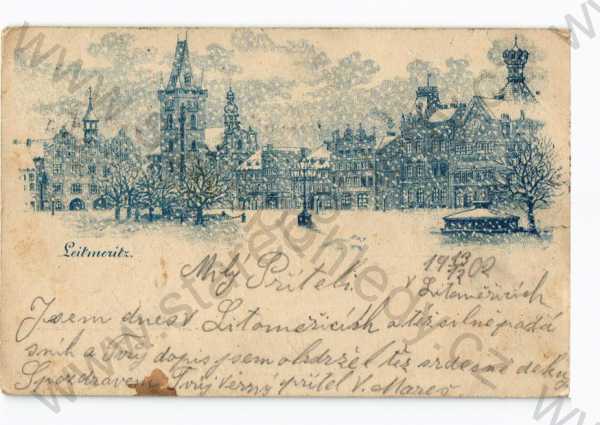 Leitmeritz.
19 13/2 02
v Litoměřicích
Milý Příteli
Jsem dnes v Litoměřicích a též silně padá
sníh a Tvůj dopis jsem obdržel též srdečně děkuj
S pozdravem Tvůj věrný přítel V. Mareš
www.stare-pohledy.cz